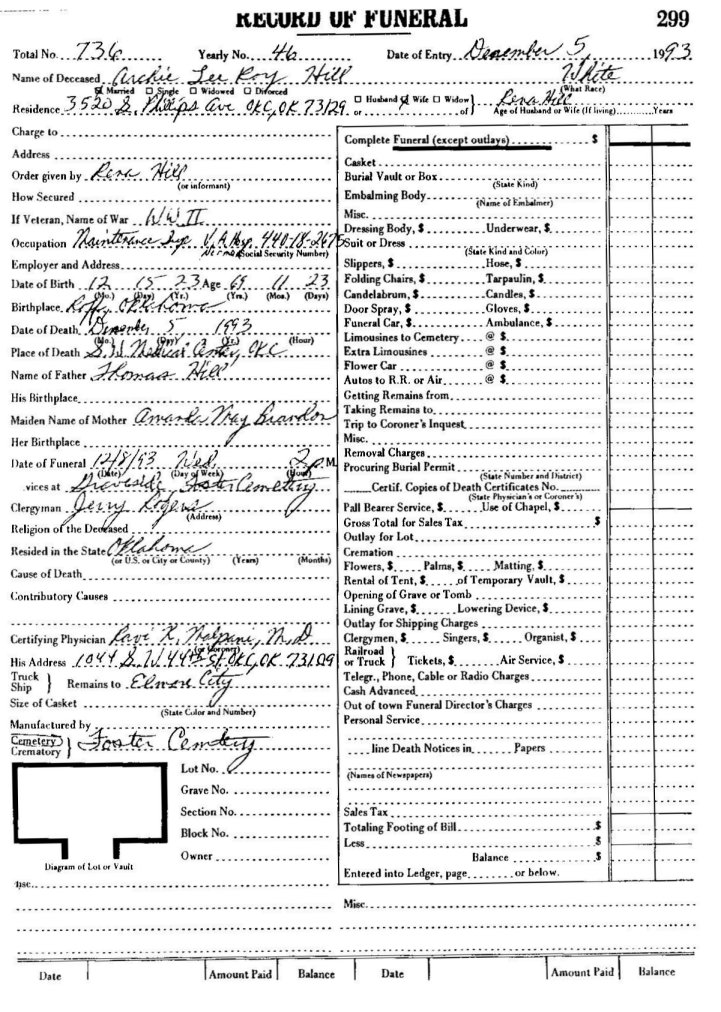 RECORD OF FUNERAL 299
Total No. 736 Yearly No. 46 Date of Entry December 5, 1993
Name of Deceased Archie Lee Roy Hill White
☑ Married ☐ Single ☐ Widowed ☐ Divorced (What Race)
Residence 3520 S. Phillips Ave OKC, OK 73129 or ☐ Husband ☑ Wife ☐ Widow } of Rena Hill Age of Husband or Wife (If living) Years
Charge to
Address
Order given by Rena Hill
(or informant)
How Secured
If Veteran, Name of War WW II
Occupation Maintenance V.A. Hosp. 440-18-2675
(Social Security Number)
Employer and Address
Date of Birth 12 15 23 Age 69 11 23
(Mo.) (Day) (Yr.) (Yrs.) (Mos.) (Days)
Birthplace Roff, Oklahoma
Date of Death December 5 1993
(Mo.) (Day) (Yr.) (Hour)
Place of Death S.W. Medical Center, OKC
Name of Father Thomas Hill
His Birthplace
Maiden Name of Mother Amanda May Brandon
Her Birthplace
Date of Funeral 12/8/93 Wed. 2 P M.
(Date) (Day of Week) (Hour)
vices at Graveside, Foster Cemetery
Clergyman Jerry Rogers
(Address)
Religion of the Deceased
Resided in the State Oklahoma
(or U.S. or City or County) (Years) (Months)
Cause of Death
Contributory Causes
Certifying Physician Ravi K. M.D
(or Coroner)
His Address 1044 S.W. 44th St, OKC, OK 73109
Truck
Ship } Remains to Elmore City
Size of Casket
(State Color and Number)
Manufactured by
Cemetery
Crematory } Foster Cemetery
Lot No.
Grave No.
Section No.
Block No.
Owner
Diagram of Lot or Vault
Complete Funeral (except outlays) $
Casket
Burial Vault or Box
(State Kind)
Embalming Body
(Name of Embalmer)
Misc.
Dressing Body, $ Underwear, $
Suit or Dress
(State Kind and Color)
Slippers, $ Hose, $
Folding Chairs, $ Tarpaulin, $
Candelabrum, $ Candles, $
Door Spray, $ Gloves, $
Funeral Car, $ Ambulance, $
Limousines to Cemetery @ $
Extra Limousines @ $
Flower Car @ $
Autos to R.R. or Air @ $
Getting Remains from
Taking Remains to
Trip to Coroner's Inquest
Misc.
Removal Charges
Procuring Burial Permit
(State Number and District)
Certif. Copies of Death Certificates No.
(State Physician's or Coroner's)
Pall Bearer Service, $ Use of Chapel, $
Gross Total for Sales Tax $
Outlay for Lot
Cremation
Flowers, $ Palms, $ Matting, $
Rental of Tent, $ of Temporary Vault, $
Opening of Grave or Tomb
Lining Grave, $ Lowering Device, $
Outlay for Shipping Charges
Clergymen, $ Singers, $ Organist, $
Railroad
or Truck } Tickets, $ Air Service, $
Telegr., Phone, Cable or Radio Charges
Cash Advanced
Out of town Funeral Director's Charges
Personal Service
line Death Notices in Papers
(Names of Newspapers)
Sales Tax
Totaling Footing of Bill $
Less $
Balance $
Entered into Ledger, page or below.
Misc.
Date Amount Paid Balance Date Amount Paid Balance